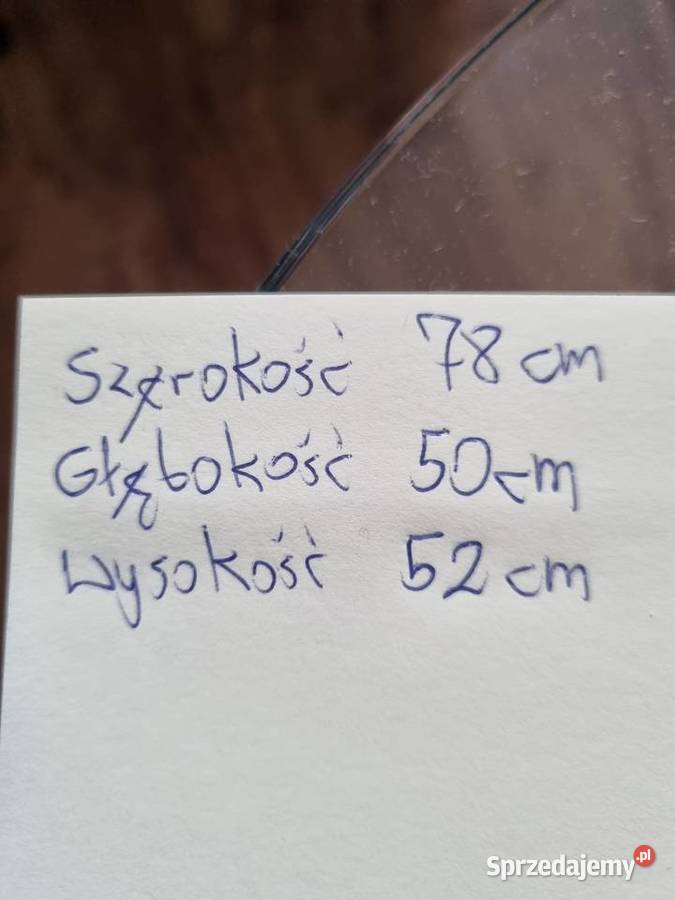 Szerokość 78 cm
Głębokość 50cm
Wysokość 52 cm
Sprzedajemy.pl